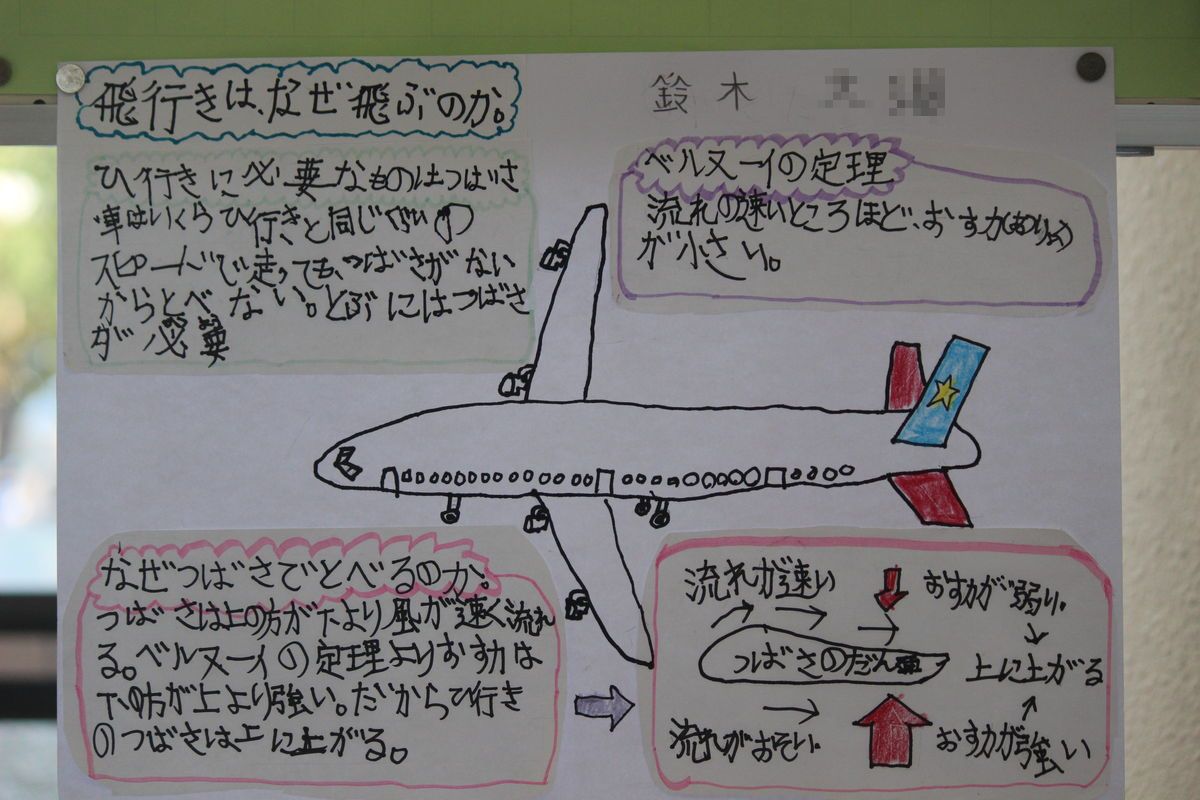 飛行きは、なぜ飛ぶのか。
鈴木
ひ行きに必要なものはつばさ
車はいくらひ行きと同じぐらいの
スピードで走っても、つばさがない
からとべない。とぶにはつばさ
が必要
ベルヌーイの定理
流れの速いところほど、おす力(あつりょく)
が小さい。
なぜつばさでとべるのか。
つばさは上の方が下より風が速く流れ
る。ベルヌーイの定理よりおす力は
下の方が上より強い。だからひ行き
のつばさは上に上がる。
流れが速い
おす力が弱い
つばさのだん面
上に上がる
流れがおそい
おす力が強い